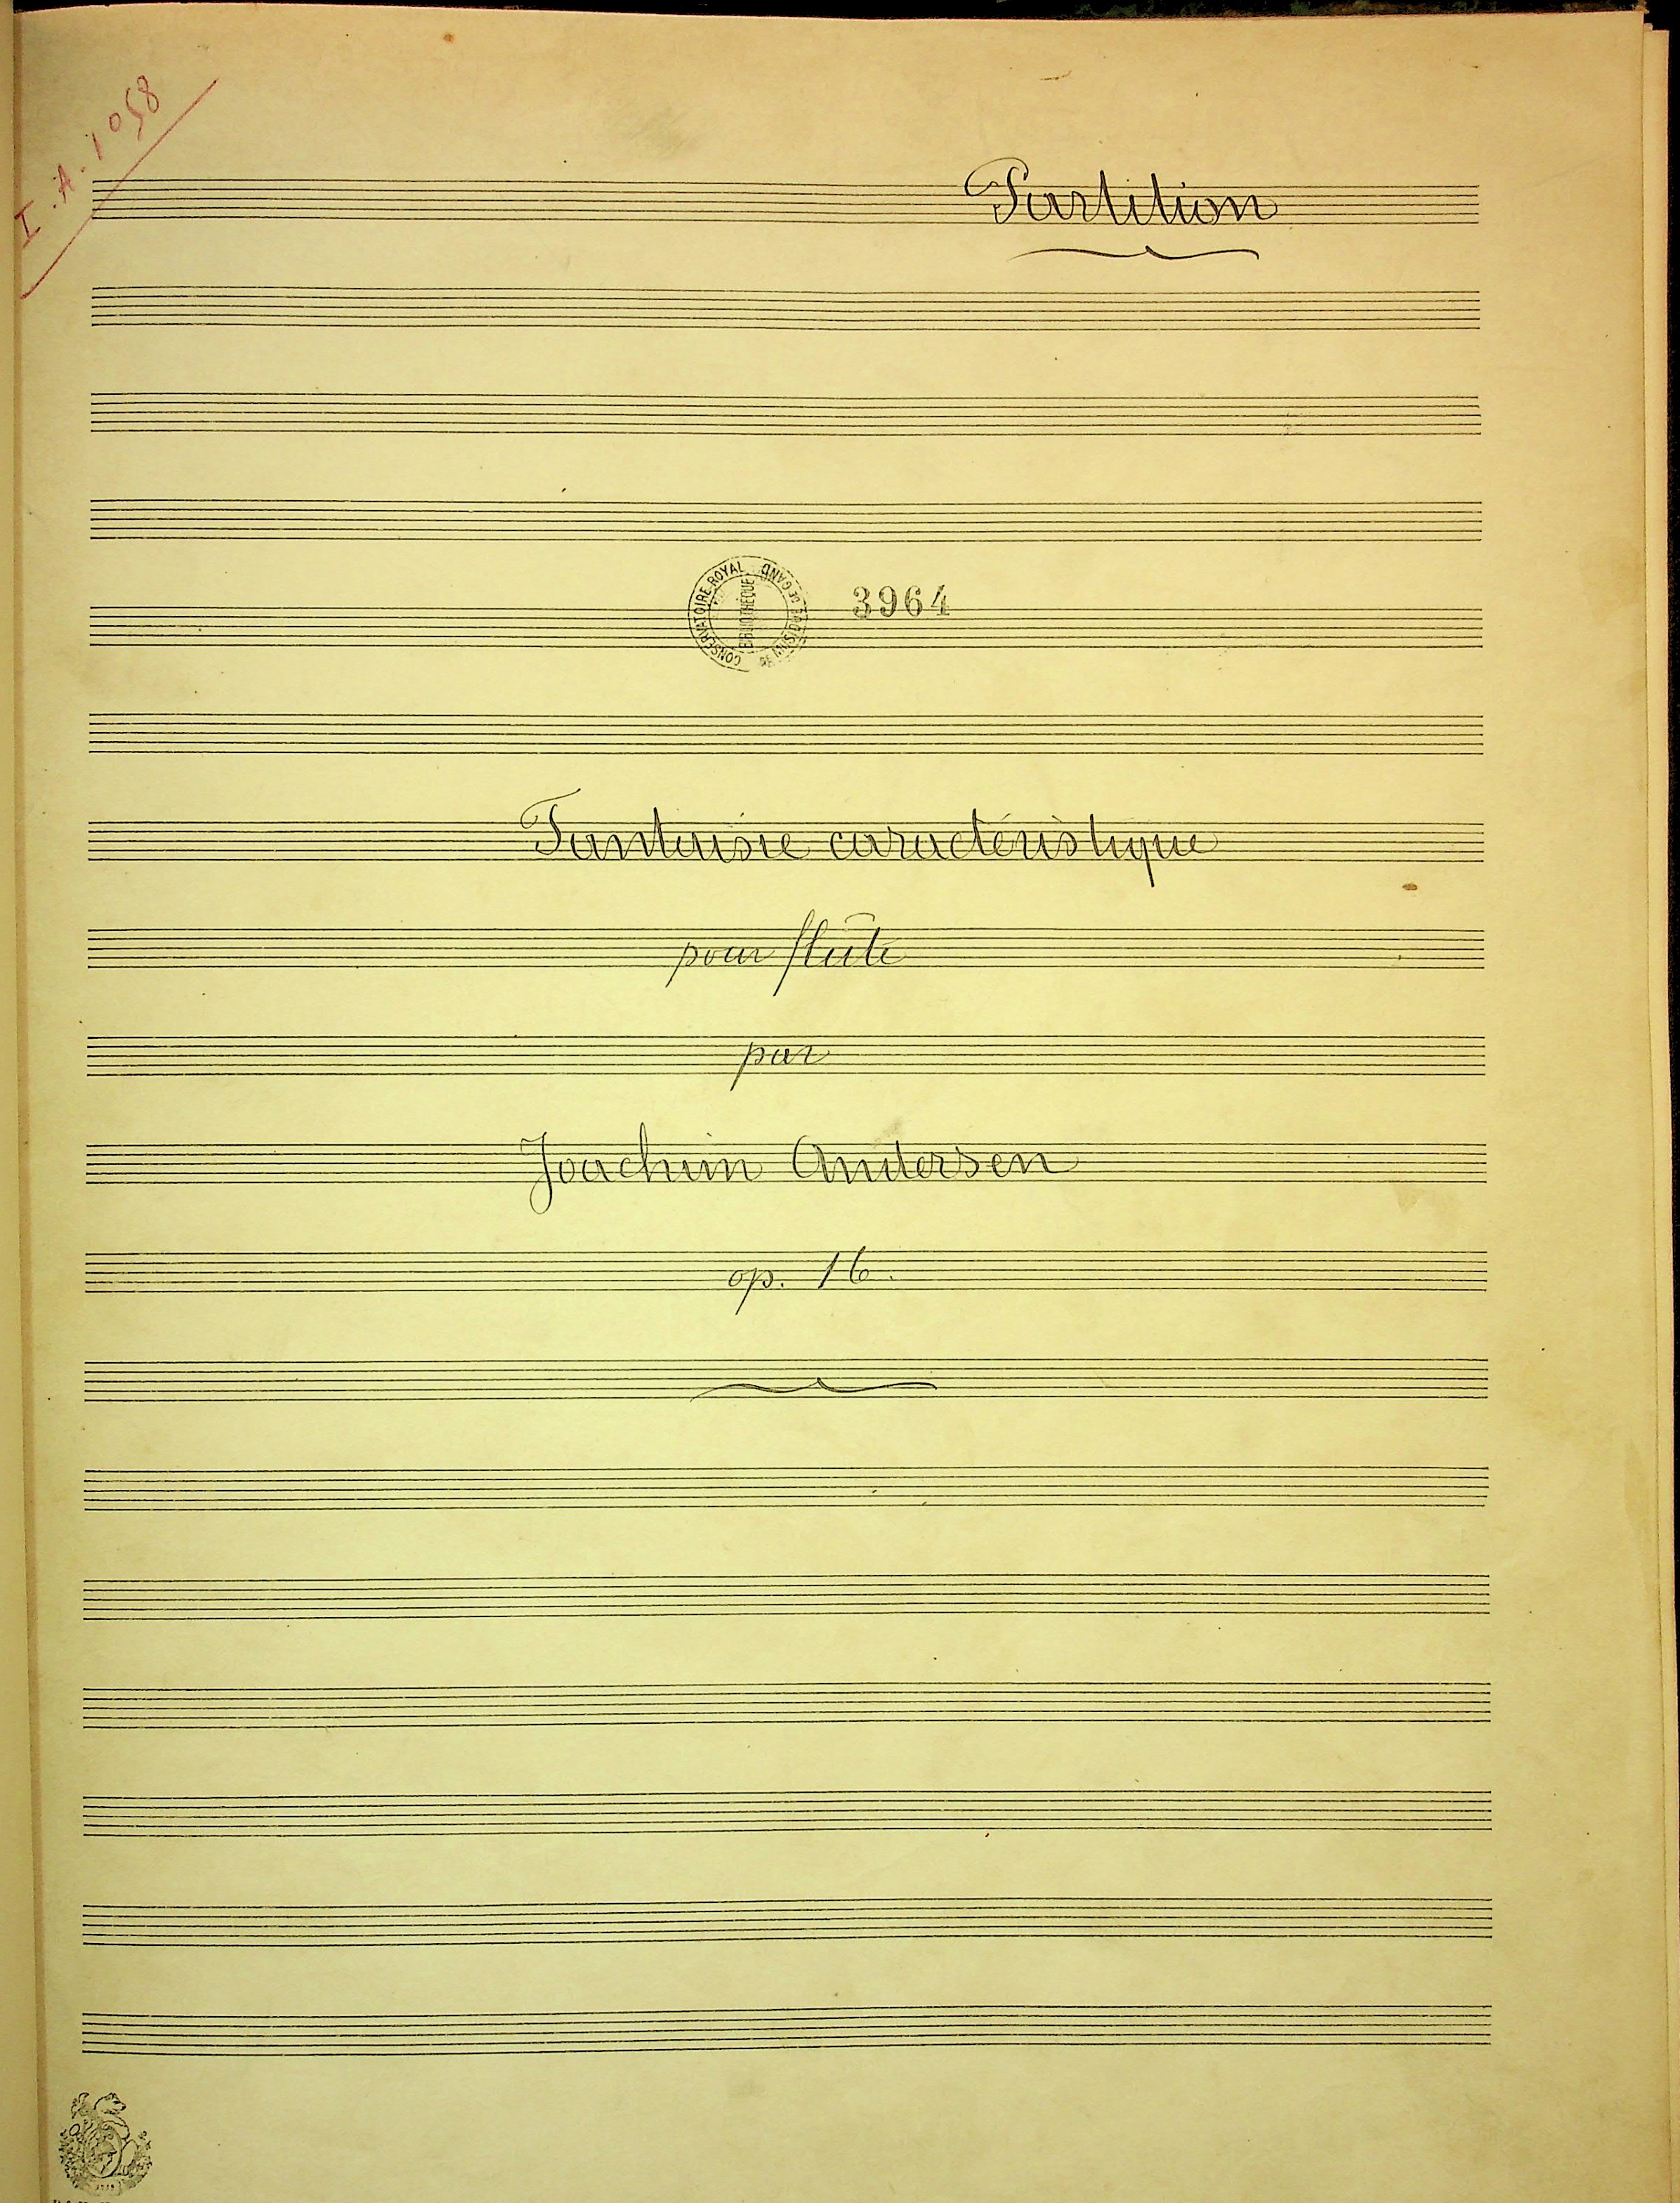 I.A.1058
Partition
CONSERVATOIRE ROYAL DE MUSIQUE DE GAND
BIBLIOTHÈQUE
3964
Fantaisie caractéristique
pour flûte
par
Joachim Andersen
op. 16.